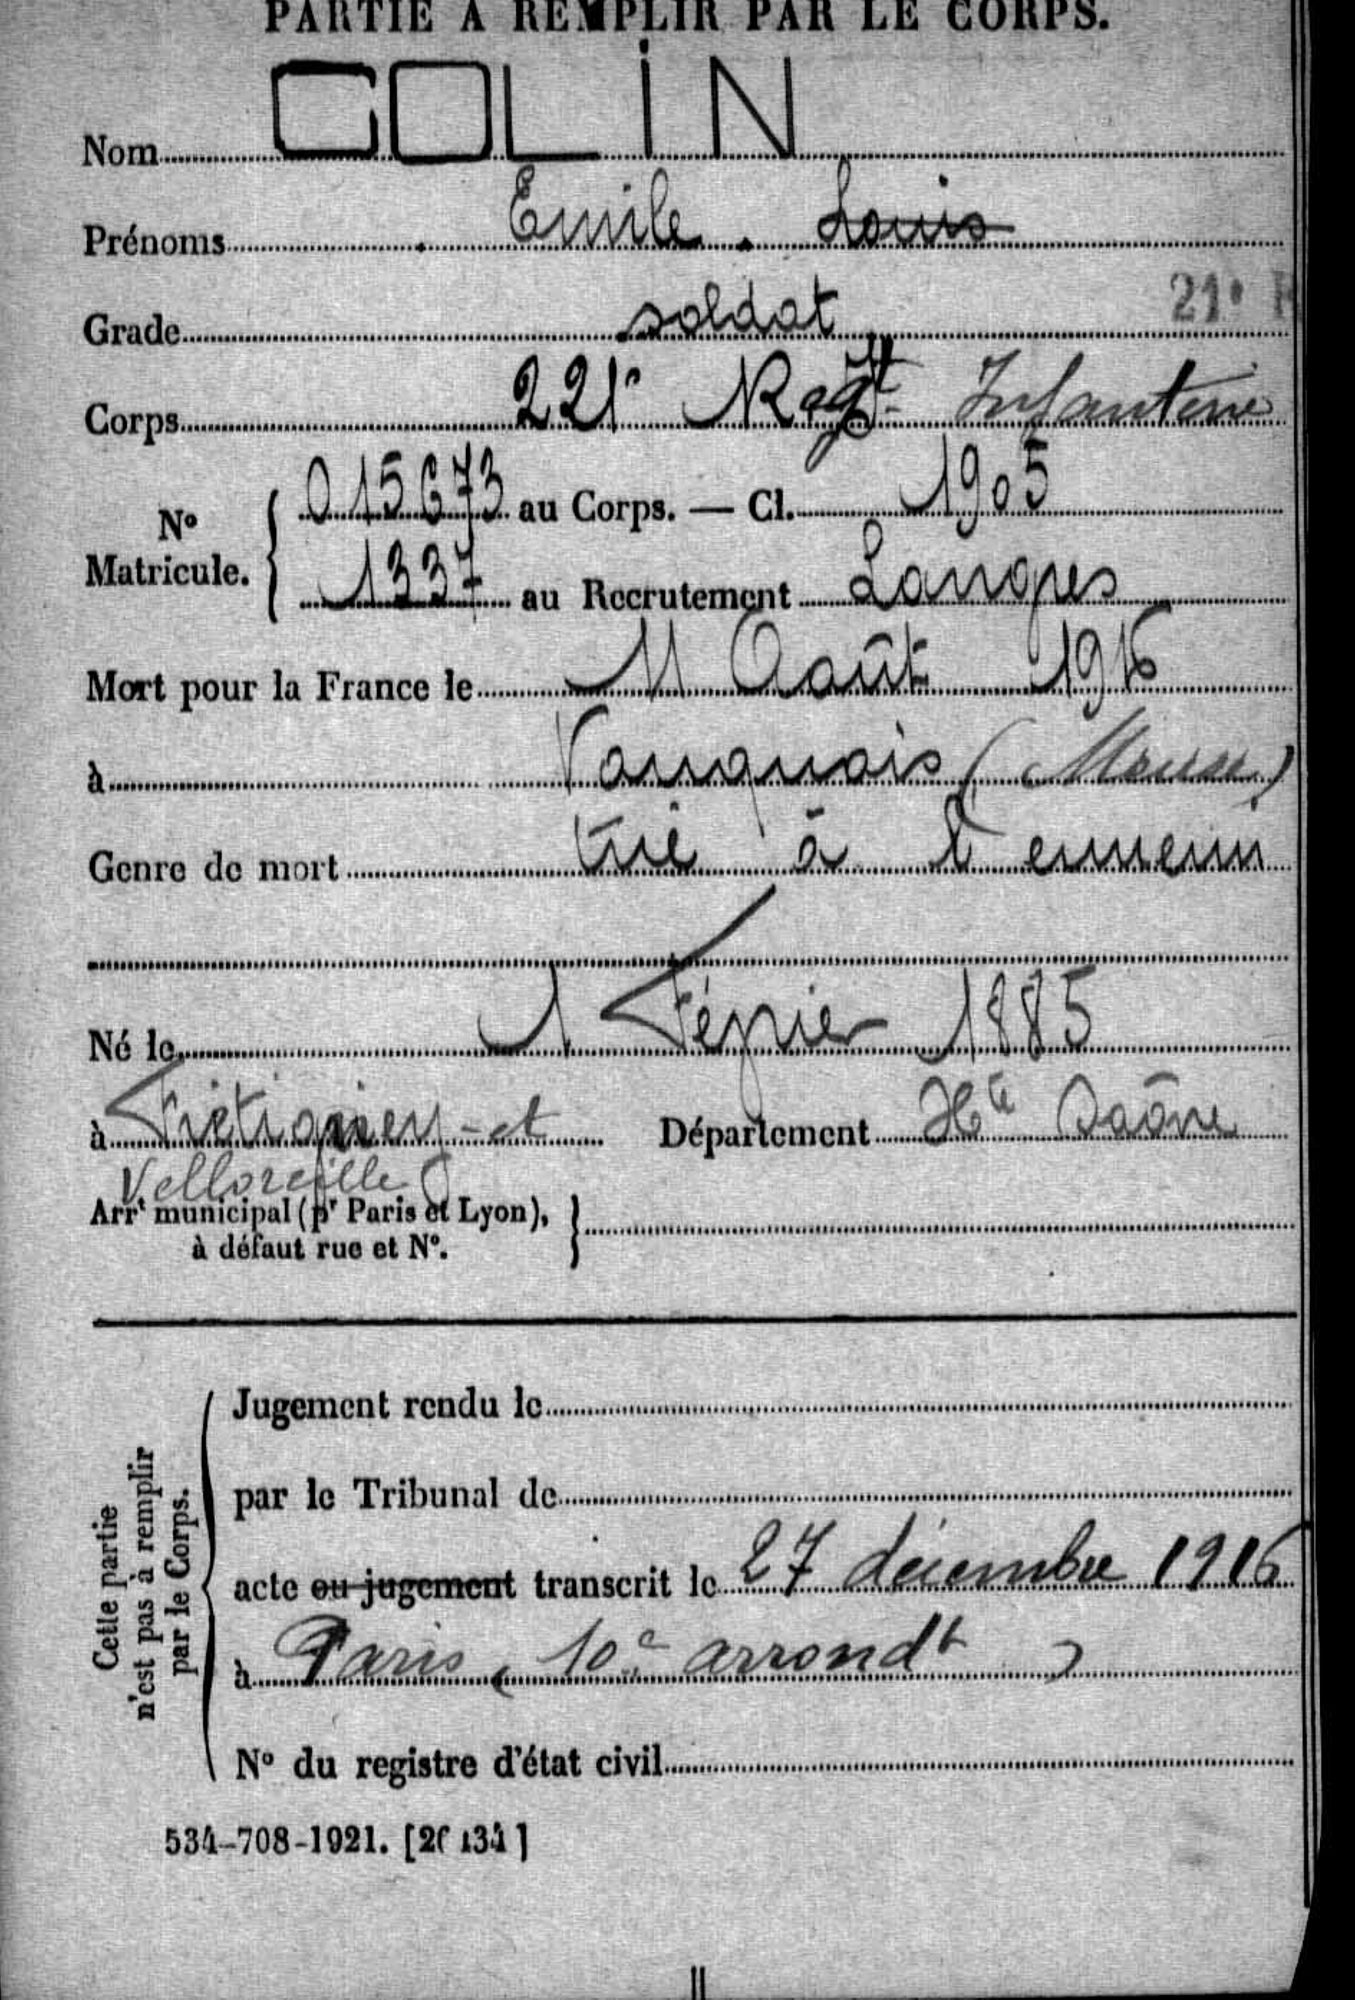 PARTIE A REMPLIR PAR LE CORPS.
Nom COLIN
Prénoms Emile. Louis
Grade soldat
21e
Corps 221e Regt Infanterie
No Matricule. { 015673 au Corps. — Cl. 1905
1337 au Recrutement Langres
Mort pour la France le 11 Août 1916
à Vauquois (Meuse)
Genre de mort tué à l'ennemi
Né le 1 Février 1885
à Frétigney-et Velloreille Département Hte Saône
Arrt municipal (pr Paris et Lyon), à défaut rue et No. }
Cette partie n'est pas à remplir par le Corps.
Jugement rendu le
par le Tribunal de
acte ou jugement transcrit le 27 décembre 1916
à Paris (10e arrondt)
No du registre d'état civil
534-708-1921.